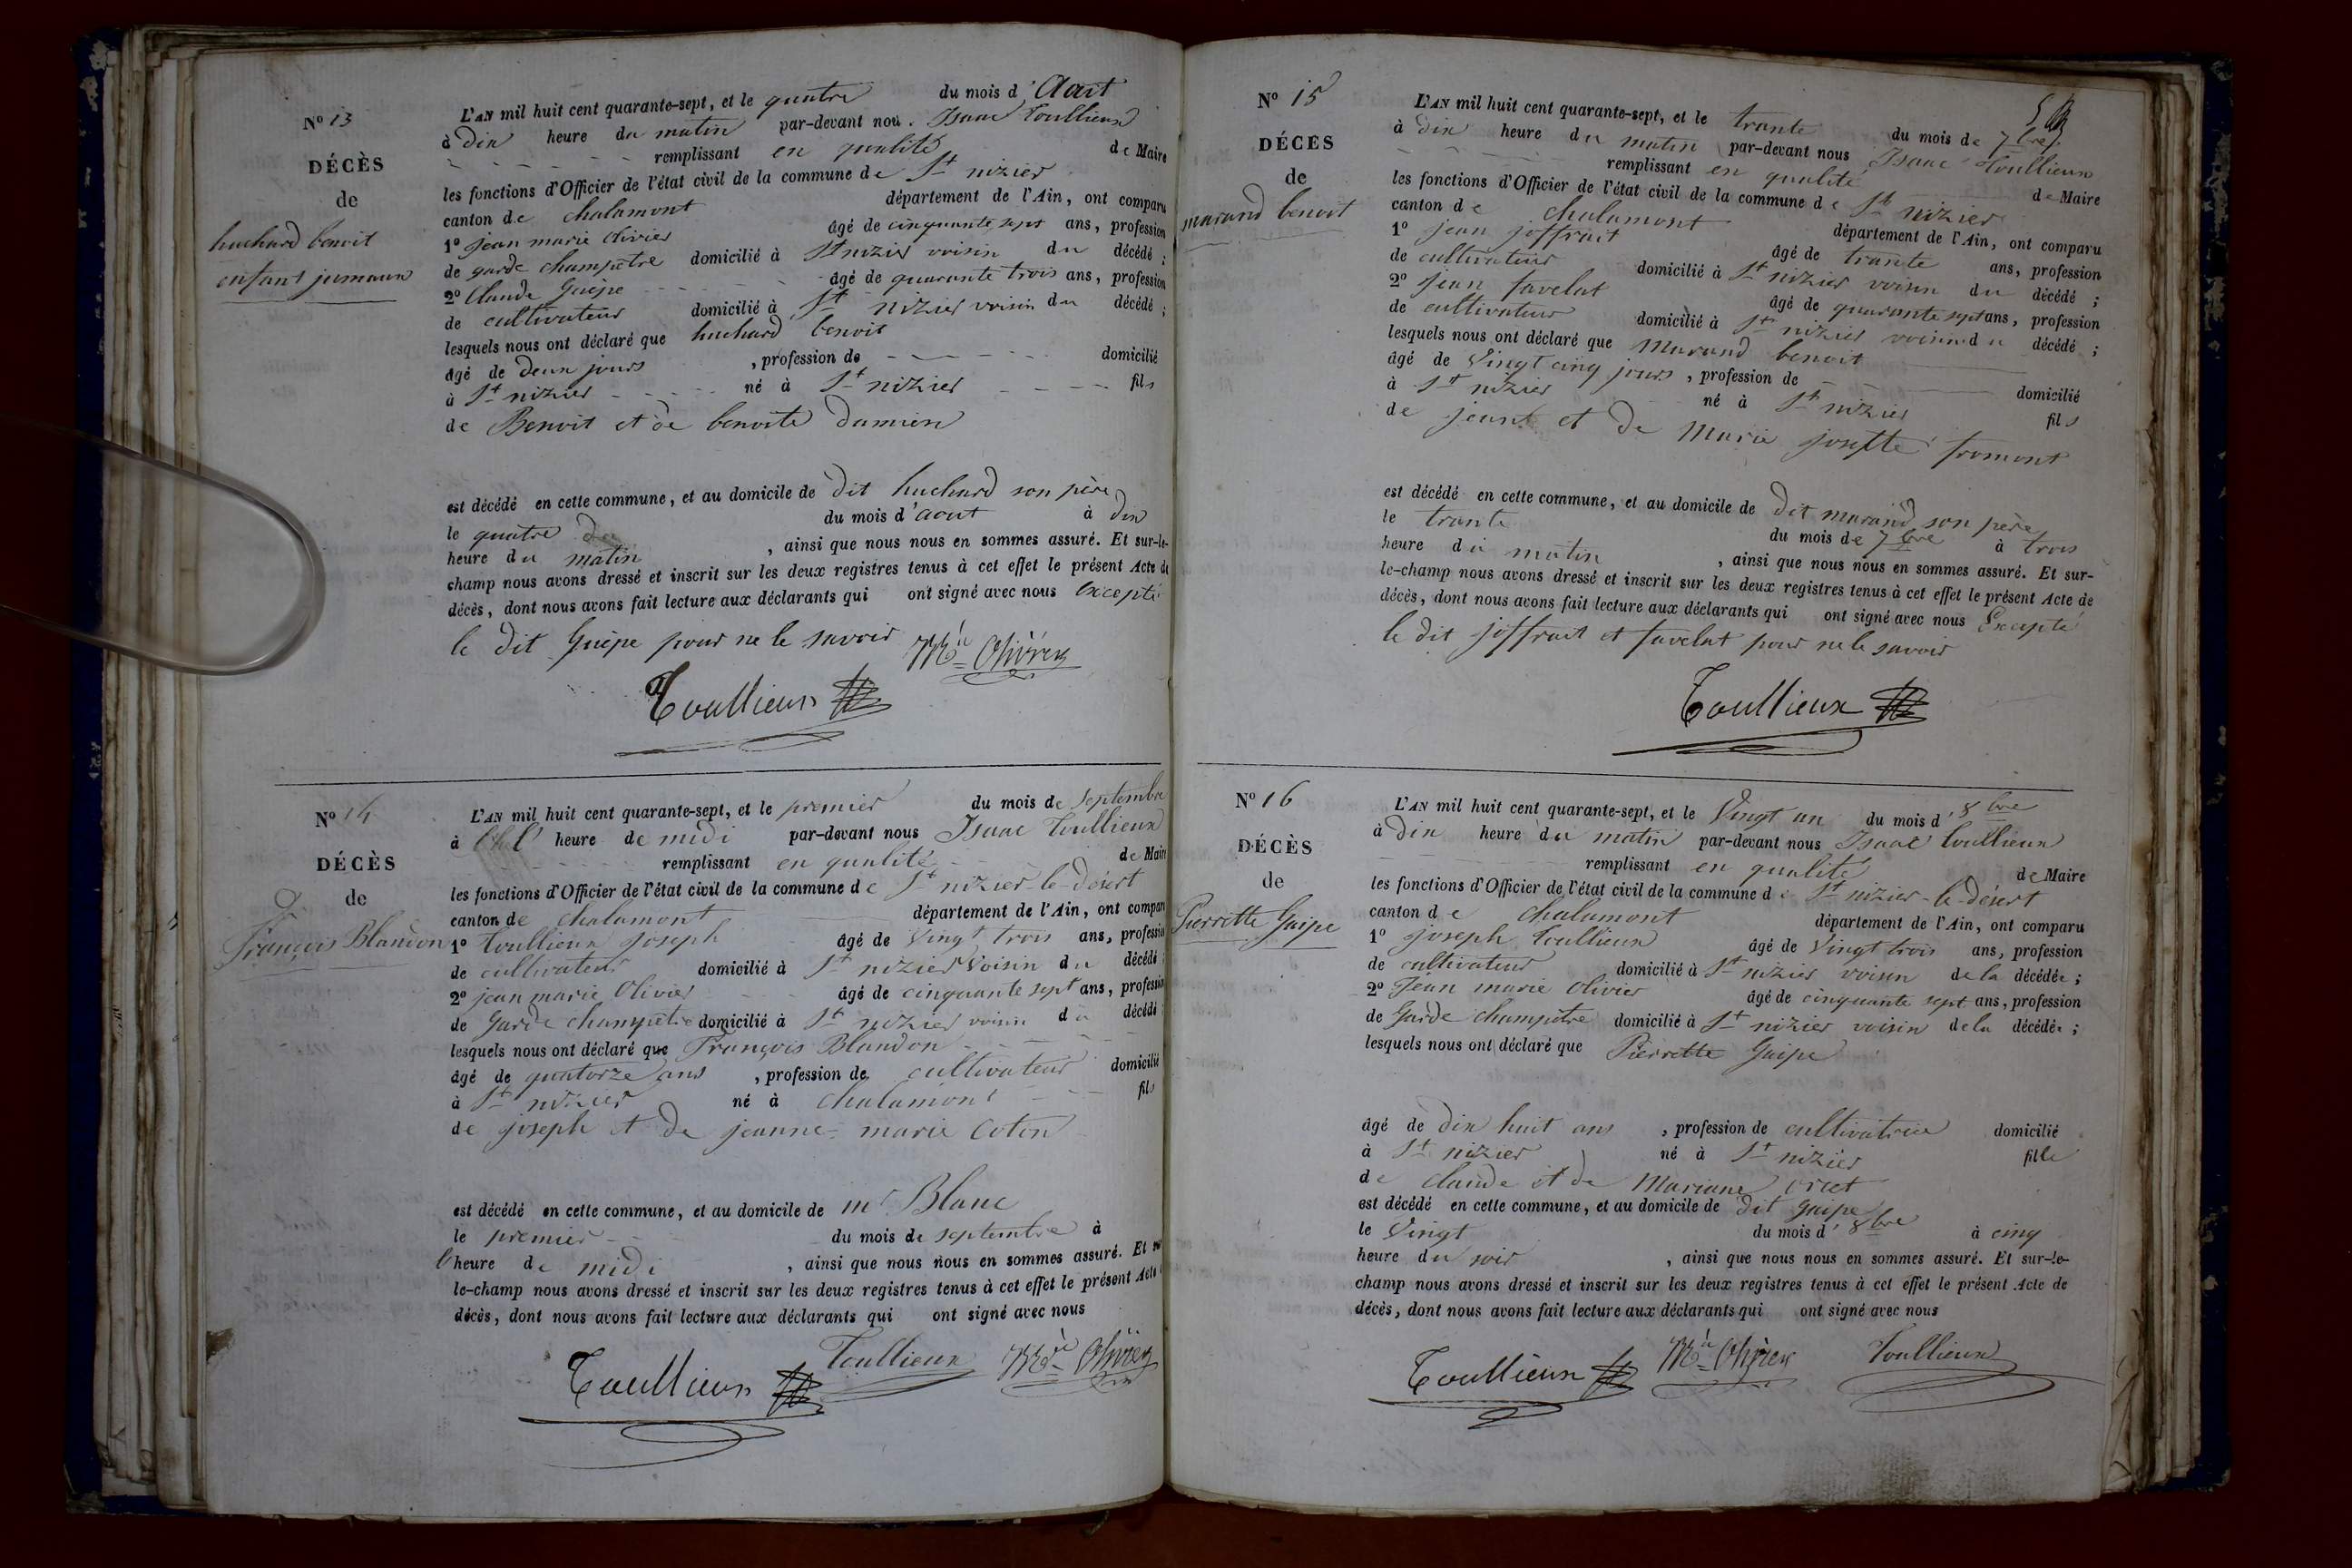 N° 13
DÉCÈS
de
huchard benoit
enfant jumaux
L'AN mil huit cent quarante-sept, et le quatre du mois d' Aout
à dix heure du matin par-devant nou. Isaac Toullieux
remplissant en qualité de Maire
les fonctions d'Officier de l'état civil de la commune de St nizier
canton de chalamont département de l'Ain, ont comparu
1° jean marie Olivier âgé de cinquante sept ans, profession
de garde champêtre domicilié à St nizier voisin du décédé ;
2° Claude Guêpe âgé de quarante trois ans, profession
de cultivateur domicilié à St nizier voisin du décédé ;
lesquels nous ont déclaré que huchard benoit
âgé de deux jours , profession de domicilié
à St nizier né à St nizier fils
de Benoit et de benoite damien
est décédé en cette commune, et au domicile de dit huchard son père
le quatre du du mois d'aout à dix
heure du matin , ainsi que nous nous en sommes assuré. Et sur-le-
champ nous avons dressé et inscrit sur les deux registres tenus à cet effet le présent Acte de
décès, dont nous avons fait lecture aux déclarants qui ont signé avec nous Excepté
le dit Guêpe pour ne le savoir Mie Olivier
Toullieux
N° 14
DÉCÈS
de
François Blandon
L'AN mil huit cent quarante-sept, et le premier du mois de Septembre
à heure de midi par-devant nous Isaac Toullieux
remplissant en qualité de Maire
les fonctions d'Officier de l'état civil de la commune de St nizier-le-désert
canton de chalamont département de l'Ain, ont comparu
1° Toullieux Joseph âgé de Vingt trois ans, profession
de cultivateur domicilié à St nizier Voisin du décédé ;
2° jean marie Olivier âgé de cinquante sept ans, profession
de Garde champêtre domicilié à St nizier voisin du décédé ;
lesquels nous ont déclaré que François Blandon
âgé de quatorze ans , profession de cultivateur domicilié
à St nizier né à chalamont fils
de joseph et de jeanne-marie Coton
est décédé en cette commune, et au domicile de mr Blanc
le premier du mois de septembre à
heure de midi , ainsi que nous nous en sommes assuré. Et sur
le-champ nous avons dressé et inscrit sur les deux registres tenus à cet effet le présent Acte
décès, dont nous avons fait lecture aux déclarants qui ont signé avec nous
Toullieux Toullieux Mie Olivier
N° 15
DÉCÈS
de
marand benoit
L'AN mil huit cent quarante-sept, et le trante du mois de 7bre
à dix heure du matin par-devant nous Isaac Toullieux
remplissant en qualité de Maire
les fonctions d'Officier de l'état civil de la commune de St nizier
canton de chalamont département de l'Ain, ont comparu
1° jean joffrait âgé de trante ans, profession
de cultivateur domicilié à St nizier voisin du décédé ;
2° jean favelat âgé de quarante sept ans, profession
de cultivateur domicilié à St nizier voisin du décédé ;
lesquels nous ont déclaré que Marand benoit
âgé de Vingt cinq jours , profession de domicilié
à St nizier né à St nizier fils
de jean et de Marie josette fromont
est décédé en cette commune, et au domicile de dit marand son père
le trante du mois de 7bre à trois
heure du matin , ainsi que nous nous en sommes assuré. Et sur-
le-champ nous avons dressé et inscrit sur les deux registres tenus à cet effet le présent Acte de
décès, dont nous avons fait lecture aux déclarants qui ont signé avec nous Excepté
le dit joffrait et favelat pour ne le savoir
Toullieux
N° 16
DÉCÈS
de
Pierrette Guipe
L'AN mil huit cent quarante-sept, et le Vingt un du mois d' 8bre
à dix heure du matin par-devant nous Isaac Toullieux
remplissant en qualité de Maire
les fonctions d'Officier de l'état civil de la commune de St nizier-le-désert
canton de Chalamont département de l'Ain, ont comparu
1° joseph Toullieux âgé de Vingt trois ans, profession
de cultivateur domicilié à St nizier voisin de la décédée ;
2° Jean marie Olivier âgé de cinquante sept ans, profession
de Garde champêtre domicilié à St nizier voisin dela décédée ;
lesquels nous ont déclaré que Pierrette Guipe
âgé de dix huit ans , profession de cultivatrice domicilié
à St nizier né à St nizier fille
de Claude et de Mariane
est décédé en cette commune, et au domicile de dit Guipe
le Vingt du mois d' 8bre à cinq
heure du soir , ainsi que nous nous en sommes assuré. Et sur-le-
champ nous avons dressé et inscrit sur les deux registres tenus à cet effet le présent Acte de
décès, dont nous avons fait lecture aux déclarants qui ont signé avec nous
Toullieux Mie Olivier Toullieux